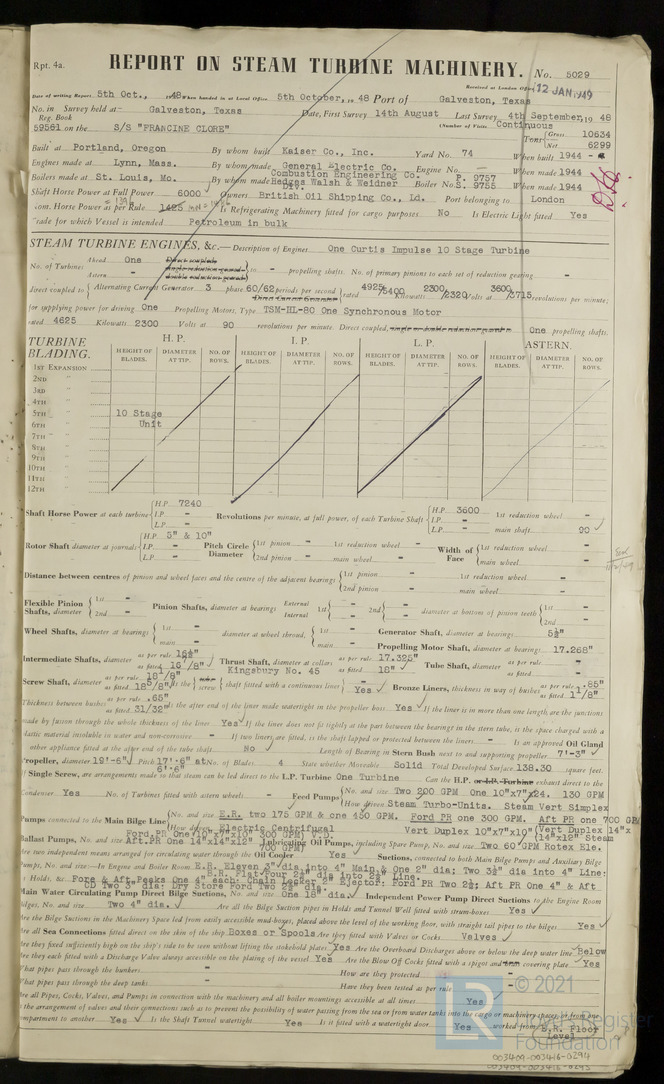 Rpt. 4a.
REPORT ON STEAM TURBINE MACHINERY. No. 5029
Received at London Office 12 JAN 1949
Date of writing Report 5th Oct., 1948 When handed in at Local Office 5th October, 19 48 Port of Galveston, Texas
No. in Survey held at Galveston, Texas Date, First Survey 14th August Last Survey 4th September, 19 48
Reg. Book (Number of Visits Continuous
59561 on the S/S "FRANCINE CLORE" Tons Gross 10634
Net 6299
Built at Portland, Oregon By whom built Kaiser Co., Inc. Yard No. 74 When built 1944
Engines made at Lynn, Mass. By whom made General Electric Co. Engine No. - When made 1944
Boilers made at St. Louis, Mo. By whom made Combustion Engineering Co. Hedges Walsh & Weidner Div. Boiler No. P. 9757 S. 9755 When made 1944
Shaft Horse Power at Full Power 6000 Owners British Oil Shipping Co., Ld. Port belonging to London
Nom. Horse Power as per Rule 1425 Is Refrigerating Machinery fitted for cargo purposes No Is Electric Light fitted Yes
Trade for which Vessel is intended Petroleum in bulk
STEAM TURBINE ENGINES, &c.—Description of Engines One Curtis Impulse 10 Stage Turbine
No. of Turbines Ahead One Direct coupled, single reduction geared double reduction geared to - propelling shafts. No. of primary pinions to each set of reduction gearing -
Astern -
direct coupled to Alternating Current Generator 3 phase 60/62 periods per second Direct Current Generator rated 4925/5400 Kilowatts 2300/2320 Volts at 3600/3715 revolutions per minute;
for supplying power for driving One Propelling Motors, Type TSM-HL-80 One Synchronous Motor
rated 4625 Kilowatts 2300 Volts at 90 revolutions per minute. Direct coupled, single or double reduction geared to One propelling shafts.
TURBINE BLADING. H. P. I. P. L. P. ASTERN.
HEIGHT OF BLADES. DIAMETER AT TIP. NO. OF ROWS. HEIGHT OF BLADES. DIAMETER AT TIP. NO. OF ROWS. HEIGHT OF BLADES. DIAMETER AT TIP. NO. OF ROWS. HEIGHT OF BLADES. DIAMETER AT TIP. NO. OF ROWS.
1ST EXPANSION
2ND
3RD
4TH
5TH 10 Stage
6TH Unit
7TH
8TH
9TH
10TH
11TH
12TH
Shaft Horse Power at each turbine H.P. 7240 I.P. - L.P. - Revolutions per minute, at full power, of each Turbine Shaft H.P. 3600 I.P. - L.P. - 1st reduction wheel - main shaft 90
Rotor Shaft diameter at journals H.P. 5" & 10" I.P. - L.P. - Pitch Circle Diameter 1st pinion - 2nd pinion - 1st reduction wheel - main wheel - Width of Face 1st reduction wheel - main wheel -
Distance between centres of pinion and wheel faces and the centre of the adjacent bearings 1st pinion - 2nd pinion - 1st reduction wheel - main wheel -
Flexible Pinion Shafts, diameter 1st - 2nd - Pinion Shafts, diameter at bearings External Internal 1st - 2nd - diameter at bottom of pinion teeth 1st - 2nd -
Wheel Shafts, diameter at bearings 1st - main - diameter at wheel shroud, 1st - main - Generator Shaft, diameter at bearings 5½"
Propelling Motor Shaft, diameter at bearings 17.268"
Intermediate Shafts, diameter as per rule 16½" as fitted 16 1/8" Thrust Shaft, diameter at collars Kingsbury No. 45 as per rule 17.325" as fitted 18" Tube Shaft, diameter as per rule - as fitted -
Screw Shaft, diameter as per rule 18 1/8" as fitted 18 5/8" Is the tube screw shaft fitted with a continuous liner Yes Bronze Liners, thickness in way of bushes as per rule .85" as fitted 1 1/8"
Thickness between bushes as per rule .65" as fitted 31/32" Is the after end of the liner made watertight in the propeller boss Yes If the liner is in more than one length, are the junctions
made by fusion through the whole thickness of the liner Yes If the liner does not fit tightly at the part between the bearings in the stern tube, is the space charged with a
plastic material insoluble in water and non-corrosive - If two liners are fitted, is the shaft lapped or protected between the liners - Is an approved Oil Gland
or other appliance fitted at the after end of the tube shaft No Length of Bearing in Stern Bush next to and supporting propeller 7'-3"
Propeller, diameter 19'-6" Pitch 17'.6" at 6'.6" No. of Blades 4 State whether Moveable Solid Total Developed Surface 138.30 square feet.
If Single Screw, are arrangements made so that steam can be led direct to the L.P. Turbine One Turbine Can the H.P. or I.P. Turbine exhaust direct to the
Condenser Yes No. of Turbines fitted with astern wheels - Feed Pumps No. and size Two 200 GPM One 10"x7"x24. 130 GPM
How driven Steam Turbo-Units. Steam Vert Simplex
Pumps connected to the Main Bilge Line No. and size E.R. two 175 GPM & one 450 GPM. Ford PR one 300 GPM. Aft PR one 700 GPM
How driven Electric Centrifugal Vert Duplex 10"x7"x10" (Vert Duplex 14"x
Ford PR One(10"x7"x10" 300 GPM) V.D. (14"x12" Steam
Ballast Pumps, No. and size Aft.PR One 14"x14"x12" 700 GPM) Lubricating Oil Pumps, including Spare Pump, No. and size Two 60 GPM Rotex Ele.
Are two independent means arranged for circulating water through the Oil Cooler Yes Suctions, connected to both Main Bilge Pumps and Auxiliary Bilge
Pumps, No. and size:—In Engine and Boiler Room E.R. Eleven 3" dia into 4" Main & One 2" dia; Two 3½" dia into 4" Line:
B.R. Flat Four 2½" dia into 2½" Line.
In Holds, &c. Fore & Aft Peaks One 4" each. Chain Locker 2" Ejector. Ford PR Two 2½; Aft PR One 4" & Aft
CD Two 3" dia: Dry Store Ford Two 2½ dia.
Main Water Circulating Pump Direct Bilge Suctions, No. and size One 18" dia. Independent Power Pump Direct Suctions to the Engine Room
Bilges, No. and size Two 4" dia. Are all the Bilge Suction pipes in Holds and Tunnel Well fitted with strum-boxes Yes
Are the Bilge Suctions in the Machinery Space led from easily accessible mud-boxes, placed above the level of the working floor, with straight tail pipes to the bilges Yes
Are all Sea Connections fitted direct on the skin of the ship Boxes or Spools Are they fitted with Valves or Cocks Valves
Are they fixed sufficiently high on the ship's side to be seen without lifting the stokehold plates Yes Are the Overboard Discharges above or below the deep water line Below
Are they each fitted with a Discharge Valve always accessible on the plating of the vessel Yes Are the Blow Off Cocks fitted with a spigot and brass covering plate Yes
What pipes pass through the bunkers - How are they protected -
What pipes pass through the deep tanks - Have they been tested as per rule -
Are all Pipes, Cocks, Valves, and Pumps in connection with the machinery and all boiler mountings accessible at all times Yes
Is the arrangement of valves and their connections such as to prevent the possibility of water passing from the sea or from water tanks into the cargo or machinery spaces, or from one
compartment to another Yes Is the Shaft Tunnel watertight Yes Is it fitted with a watertight door Yes worked from E.R. Floor Level
© 2021
Lloyd's Register
Foundation
003409-003416-0294
003409-003416-0295